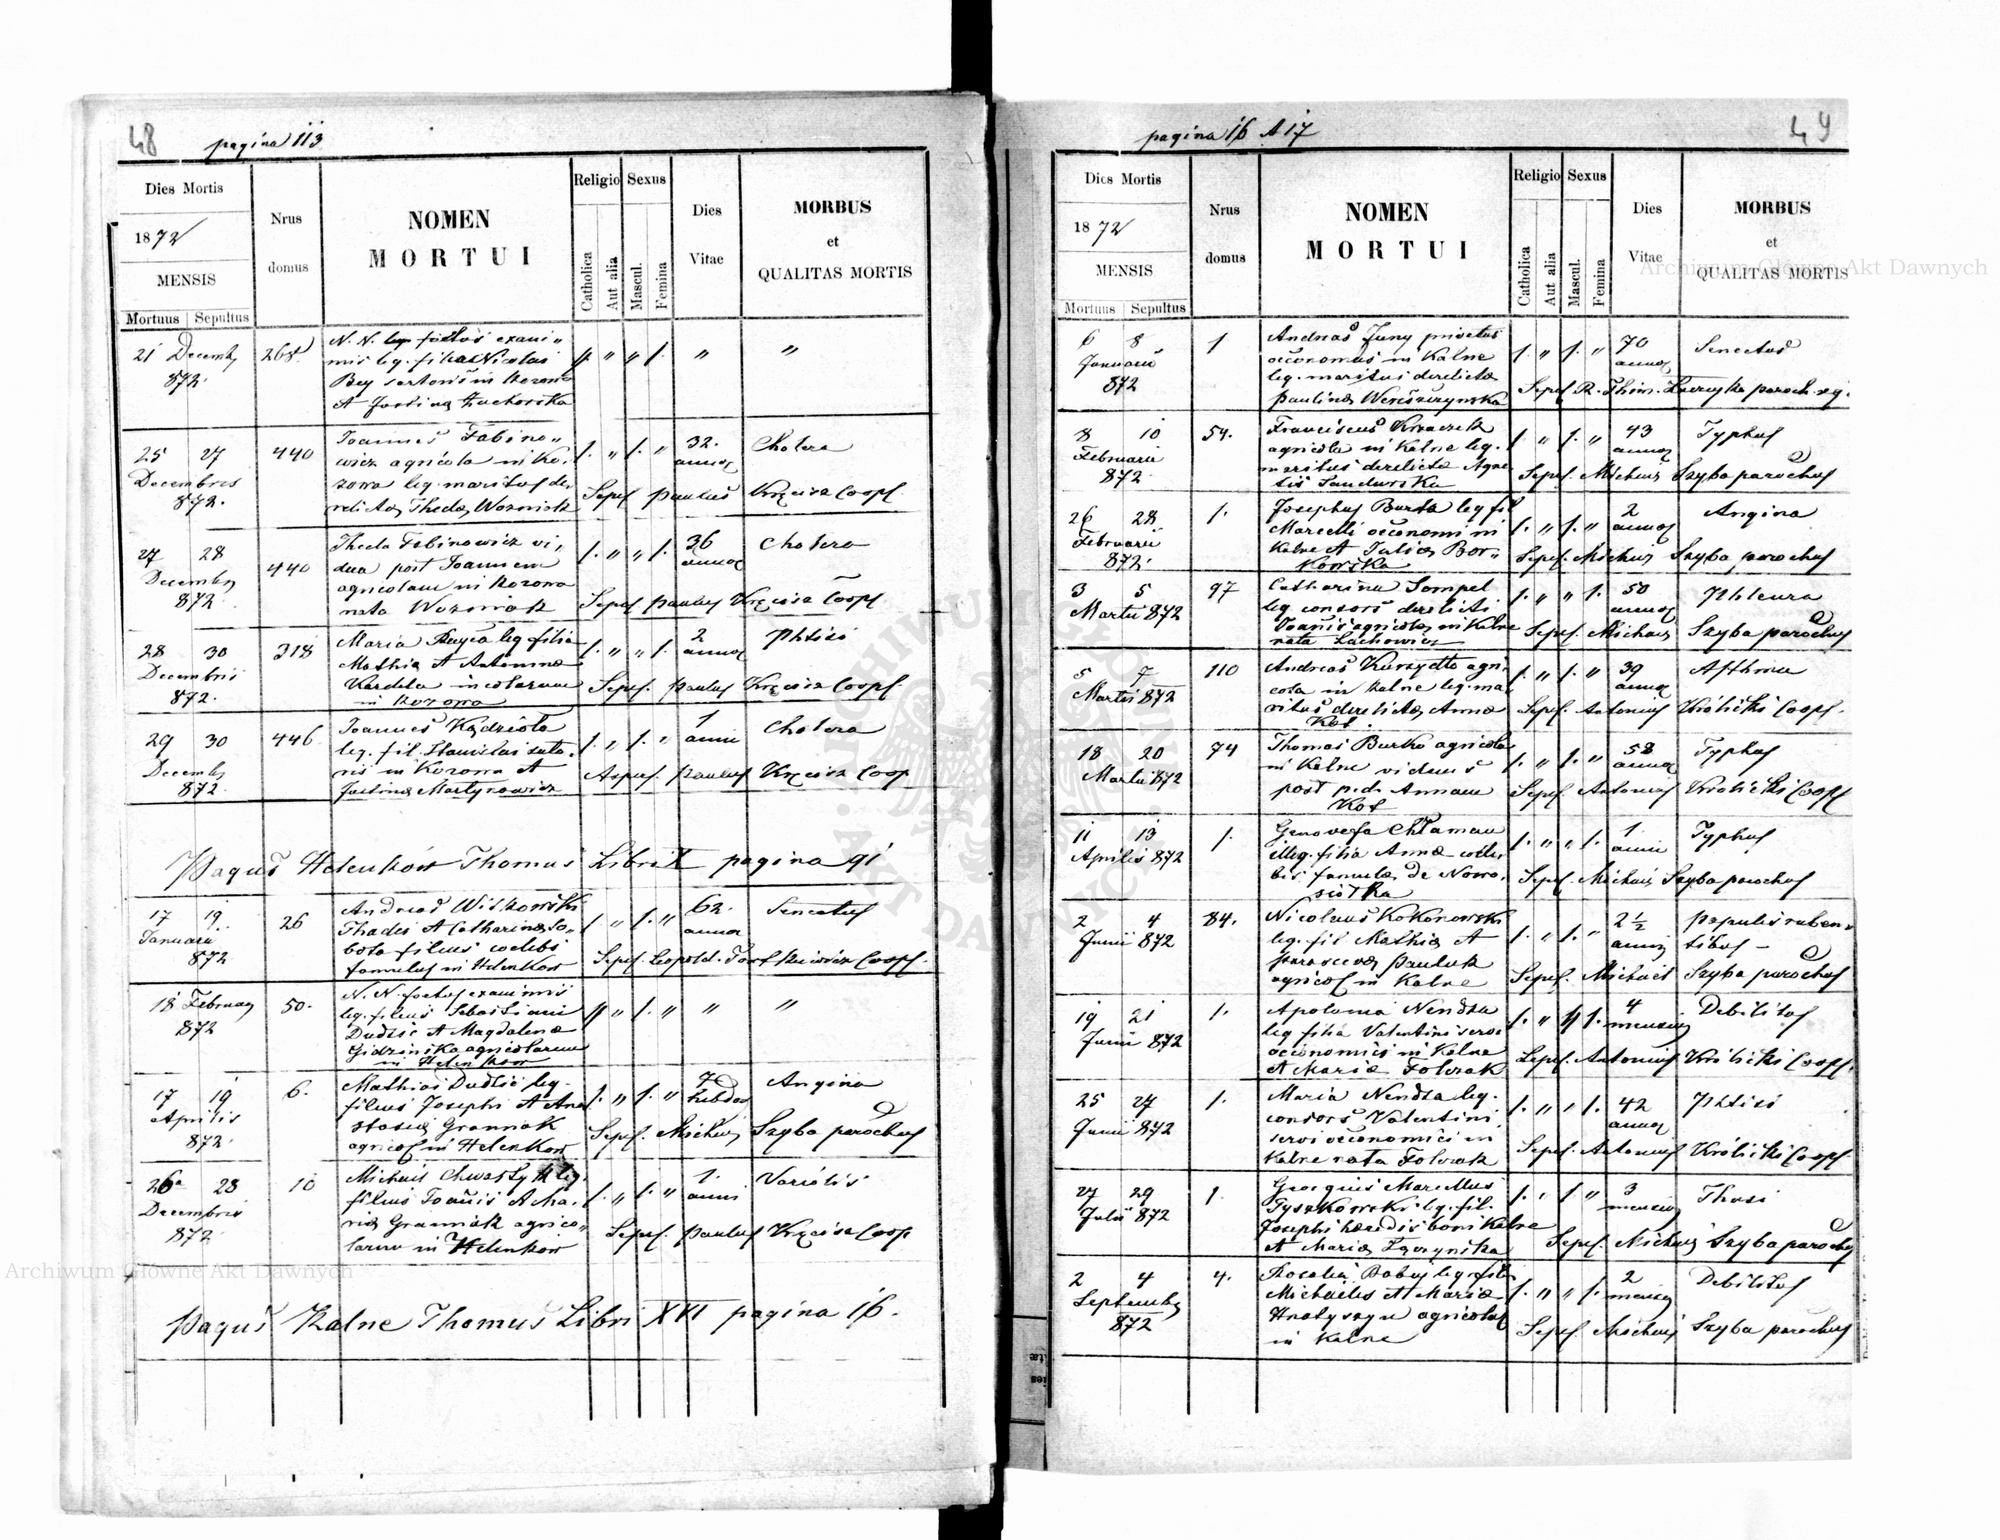 48
pagina 113
Dies Mortis
1872
MENSIS
Mortuus Sepultus
Nrus
domus
NOMEN
MORTUI
Religio
Catholica
Aut alia
Sexus
Mascul.
Femina
Dies
Vitae
MORBUS
et
QUALITAS MORTIS
21 Decemb
872.
268.
N. N. foetus exani„
mis leg. filius Nicolai
Bey sartoris in Kozowa
1. „ „ 1. „ „
25 27
Decembris
872.
440
Joannes Fabino„
wicz agricola in Ko„
zowa leg. maritus de„
relictae Theclae Wozniak
1. „ 1. „
32.
annor
Cholera
Sepel. Paulus Kręcisz Coop.
27 28
Decemb
872
440
Thecla Fabinowicz vi„
dua post Joannem
agricolam in Kozowa
nata Wozniak
1. „ „ 1.
36
annor
Cholera
Sepel Paulus Kręcisz Coop
28 30
Decembris
872.
318
Maria leg filia
Mathiae et Antoninae
Kardela
in Kozowa
1. „ „ 1.
2
annor
Phtisi
Sepel. Paulus Kręcisz Coop.
29 30
Decemb
872
446
Joannes Kądziola
leg. fil. Stanislai suto„
ris in Kozowa et
Justinae Martynowicz
1. „ 1. „
1
anni
Cholera
Paulus Kręcisz Coop
Pagus Helenków Thomus Libri X pagina 91
17 19.
Januarii
872
26
Andreas Witkowski
Thadei et Catharinae So„
bota filius coelebs
famulus in Helenkow
1 „ 1. „
62.
annor
Senectus
Sepel. Leopold. Coop.
18 February
872
50.
N. N. foetus exanimis
leg. filius Sebastiani
Dudzic et Magdalenae
Gidzinska agricolarum
in Helenkow
„ 1. „ „ „
17 19
Aprilis
872
6.
Mathias Dudzic leg.
filius Josephi et Ana
stasiae Grannak
agricol in Helenkow
1. „ 1. „
7
hebdom
Angina
Sepel. Michael Szyba parochus
26 28
Decembris
872
10
Michael Chwastyk leg.
filius Joanis et Ma„
riae Grannak agrico„
larum in Helenkow
1. „ 1. „
1.
anni
Variolis
Sepel. Paulus Kręcisz Coop
Pagus Kalne Thomus Libri XVI pagina 16.
49
pagina 16 et 17
Dies Mortis
1872
MENSIS
Mortuus Sepultus
Nrus
domus
NOMEN
MORTUI
Religio
Catholica
Aut alia
Sexus
Mascul.
Femina
Dies
Vitae
MORBUS
et
QUALITAS MORTIS
6 8
Januarii
872
1
Andreas Juny privatus
oeconomus in Kalne
leg. maritus derelictae
Paulinae Wereszczynska
1. „ 1. „
70
annor
Senectus
Sepel R. Thom. paroch.
8 10
Februarii
872
54.
Franciscus Kraczek
agricola in Kalne leg.
maritus derelictae Agne
tis Sandurska
1 „ 1. „
43
annor
Typhus
Sepel. Michael Szyba parochus
26 28
Februarii
872.
1.
Josephus Burta leg fil
Marcelli oeconomi in
Kalne et Juliae Bor„
kowska
1. „ 1. „
2
annor
Angina
Sepel. Michael Szyba parochus
3 5
Martii 872
97
Catharina Sompel
leg. consors derelicti
Joanis agricolae in Kalne
nata Lachowicz
1. „ „ 1.
50
annor
Phleura
Sepel. Michael Szyba parochus
5 7
Martii 872
110
Andreas Kurzydlo agri„
cola in Kalne leg. ma„
ritus derelictae Annae
Kot.
1. „ 1. „
39
annor
Asthma
Sepel. Antonius Królicki Coop.
18 20
Martii 872
74
Thomas Burko agricola
in Kalne viduus
post p.d. Annam
Kot
1. „ 1. „
58
annor
Typhus
Sepel. Antonius Królicki Coop
11 13
Aprilis 872
1.
Genovefa Chlaman
illeg. filia Annae coele„
bis famulae de Nowo„
siolka
1. „ „ 1.
1
anni
Typhus
Sepel. Michael Szyba parochus
2 4
Junii 872
84.
Nicolaus Kokonowski
leg. fil Mathiae et
Parascevae Pauluk
agricol in Kalne
1. „ 1. „
2 1/2
annor
papulis ruben„
tibus –
Sepel. Michael Szyba parochus
19 21
Junii 872
1.
Apolonia Nendza
leg filia Valentini servi
oeconomici in Kalne
et Mariae Folczak
1. „ „ 1.
4
mensium
Debilitas
Sepel. Antonius Królicki Coop.
25 27
Junii 872
1.
Maria Nendza leg.
consors Valentini
servi oeconomici in
Kalne nata Folczak
1. „ „ 1.
42
annor
Phtisi
Sepel. Antonius Królicki Coop
27 29
Julii 872
1.
Georgius Marcellus
Tyszkowski leg. fil.
Josephi haeredis boni Kalne
et Mariae Tęczynska
1. „ 1 „
3
mensium
Sepel. Michael Szyba parochus
2 4
Septemb
872
4.
Rosalia Babij leg. filia
Michaelis et Mariae
Hnatyszyn agricolae
in Kalne
1. „ „ 1.
2
mensium
Debilitas
Sepel. Michael Szyba parochus
Archiwum Główne Akt Dawnych
Archiwum Główne Akt Dawnych
ARCHIWUM GŁÓWNE
AKT DAWNYCH